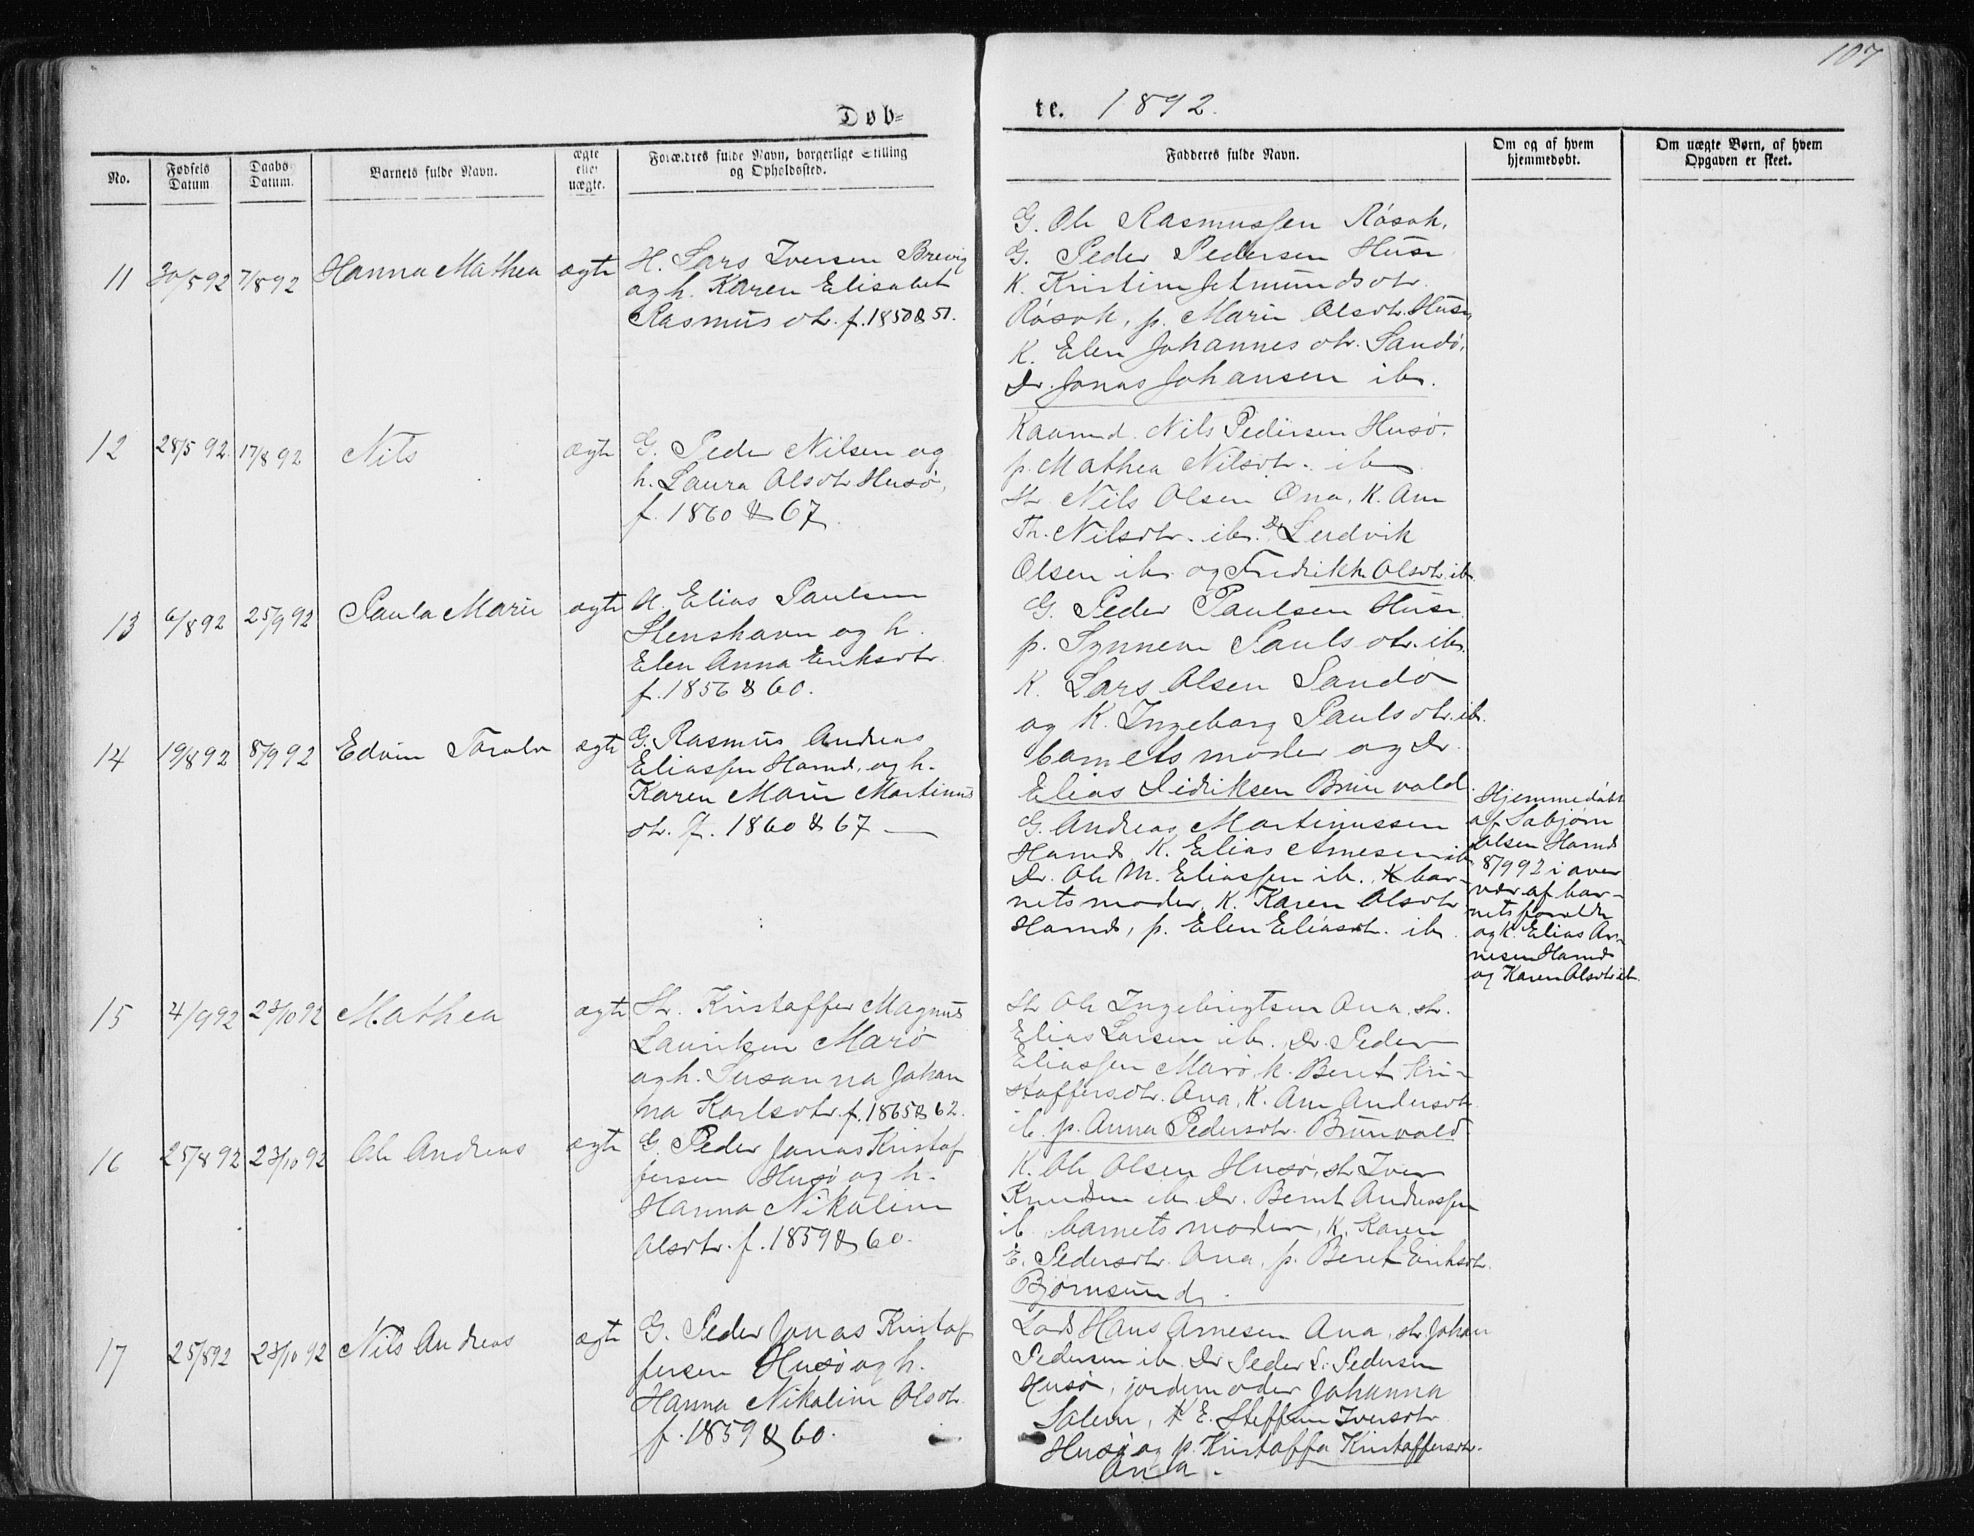 107
Døb=
te. 1892.
No.
Fødsels Datum
Daabs Datum.
Barnets fulde Navn.
ægte eller uægte.
Forældres fulde Navn, borgerlige Stilling
og Opholdssted.
Fadderes fulde Navn.
Om og af hvem
hjemmedøbt.
Om uægte Børn, af hvem
Opgaven er skeet.
11 30/5 92 7/8 92 Hanna Mathea ægte
H. Lars Iversen Brevig
og h. Karen Elisabet
Rasmusdtr. f. 1850 & 51.
G. Ole Rasmussen Røsok,
G. Peder Pedersen Huse
K. Kristine Jetmundsdtr.
Røsok, p. Marie Olsdtr. Huse,
K. Elen Johannesdtr. Sandø,
Dr. Jonas Johansen ib.
12 28/5 92. 17/8 92 Nils ægte
G. Peder Nilsen og
h. Laura Olsdtr Husø,
f. 1860 & 67.
Kaarmd. Nils Pedersen Husø.
p. Mathea Nilsdtr. ib
Str. Nils Olsen Ona, K. Ane
Th. Nilsdtr. ib. Dr Ludvik
Olsen ib og Fredrikke Olsdtr. ib.
13 6/8 92 25/9 92 Paula Marie ægte
H. Elias Paulsen
Stenshavn og h.
Elen Anna Eriksdtr.
f. 1856 & 60.
G. Peder Paulsen Huse
p. Synneve Paulsdtr. ib.
K. Lars Olsen Sandø
og K. Ingeborg Paulsdtr. ib.
barnets moder og Dr.
Elias Didriksen Brunvold.
14 19/8 92 8/9 92 Edvin Toralv ægte
G. Rasmus Andreas
Eliassen Harnd. og h.
Karen Marie Martinus
dtr. f. 1860 & 67 —
G. Andreas Martinussen
Harnd, K. Elias Arnesen ib
Dr. Ole M. Eliassen ib. K bar-
nets moder, K. Karen Olsdtr
Harnd, p. Elen Eliasdtr. ib
Hjemmedøbt
af Sebjørn
Olsen Harnd
8/9 92 i over
vær af bar-
nets forældre
og K. Elias Ar-
nesen Harnd
og Karen Olsdtr ib.
15 4/9 92 23/10 92 Mathea ægte
Str. Kristoffer Magnus
Lauritsen Marø
og h. Susanna Johan
na Karlsdtr. f. 1865 & 62.
Str Ole Ingebrigtsen Ona, str.
Elias Larsen ib. Dr. Peder
Eliassen Marø, K. Beret Kri-
stoffersdtr. Ona, K. Ane Andersdtr
ib. p. Anna Pedersdtr. Brunvold
16 25/8 92 23/10 92 Ole Andreas ægte
G. Peder Jonas Kristof
fersen Husø og h.
Hanna Nikoline
Olsdtr. f. 1859 & 60.
K. Ole Olsen Husø, str Iver
Knudsen ib Dr. Bernt Andreassen
ib. barnets moder, K. Karen
E. Pedersdtr. Ona, p. Beret Eriksdtr.
Bjørnsund.
17 25/8 92 23/10 92 Nils Andreas ægte
G. Peder Jonas Kristof
fersen Husø og h.
Hanna Nikoline Olsdtr.
f. 1859 & 60.
Lods Hans Arnesen Ona, str. Johan
Pedersen ib. Dr Peder L. Pedersen
Husø, jordemoder Johanna
Solem, K E. Steffine Iversdtr
Husø og p. Kristoffa Kristoffersdtr.
Ona.